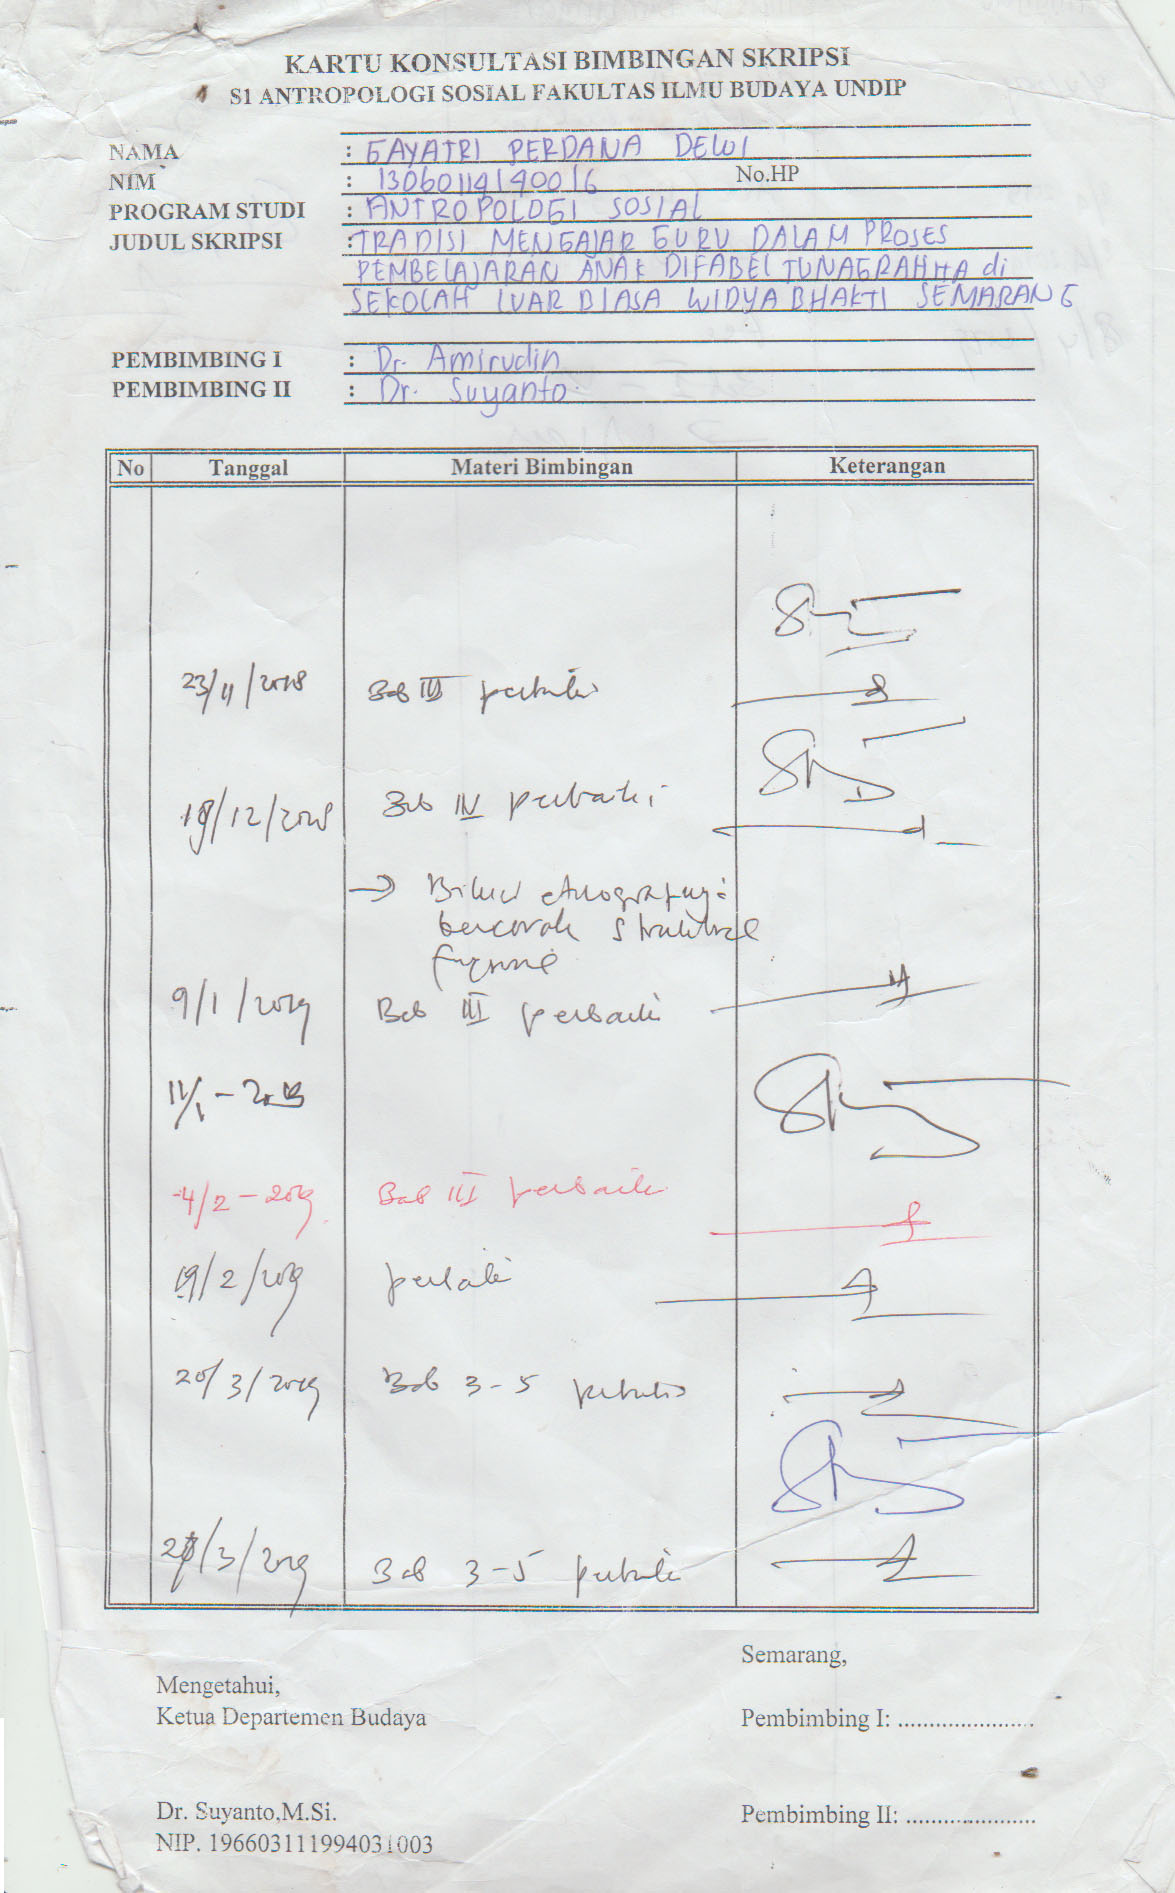 KARTU KONSULTASI BIMBINGAN SKRIPSI
S1 ANTROPOLOGI SOSIAL FAKULTAS ILMU BUDAYA UNDIP
NAMA : GAYATRI PERDANA DEWI
NIM : 13060114190016 No.HP
PROGRAM STUDI : ANTROPOLOGI SOSIAL
JUDUL SKRIPSI : TRADISI MENGAJAR GURU DALAM PROSES
PEMBELAJARAN ANAK DIFABEL TUNAGRAHITA di
SEKOLAH LUAR BIASA WIDYA BHAKTI SEMARANG
PEMBIMBING I : Dr. Amirudin
PEMBIMBING II : Dr. Suyanto
No Tanggal Materi Bimbingan Keterangan
23/11/2018 Bab III perbaiki
18/12/2018 Bab IV perbaiki
→ etnografi
bercorak struktural
9/1/2019 Bab III perbaiki
11/1 - 2019
4/2 - 2019 Bab III perbaiki
19/2/2019 perbaiki
20/3/2019 Bab 3-5 perbaiki
27/3/2019 Bab 3-5 perbaiki
Semarang,
Mengetahui,
Ketua Departemen Budaya
Pembimbing I: ......................
Dr. Suyanto,M.Si.
Pembimbing II: .....................
NIP. 196603111994031003